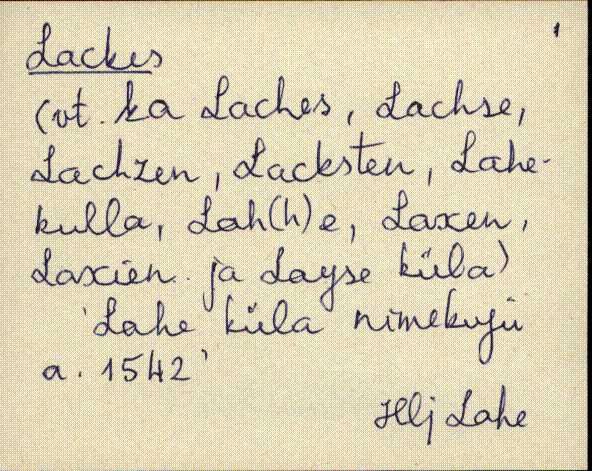 1
Lackes
(vt. ka Laches, Lachse,
Lachzen, Lacksten, Lahe-
kulla, Lah(h)e, Laxen,
Laxien ja Layse küla)
'Lahe küla nimekuju
a. 1542'
Hlj Lahe